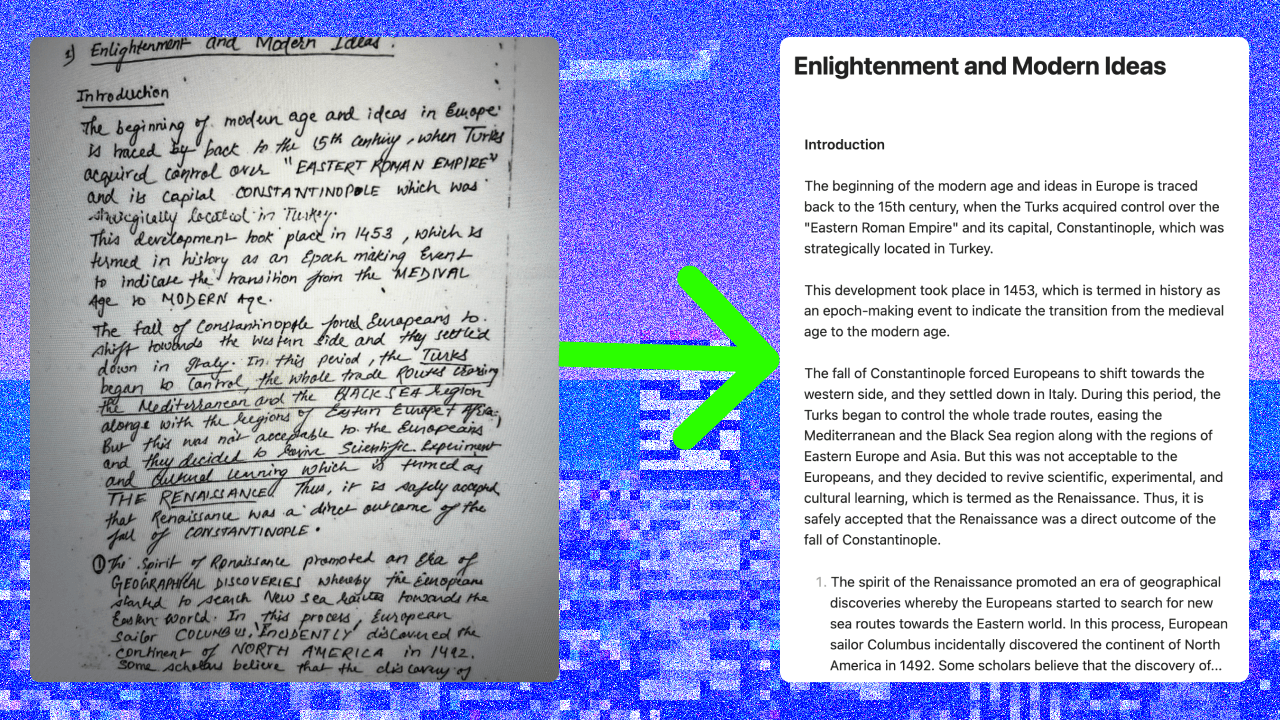 1) Enlightenment and Modern Ideas.
Introduction
The beginning of modern age and ideas in Europe
is traced by back to the 15th century, when Turks
acquired control over "EASTERT ROMAN EMPIRE"
and its capital CONSTANTINOPOLE which was
strategically located in Turkey.
This development took place in 1453, which is
termed in history as an Epoch making Event
to indicate the transition from the MEDIVAL
Age to MODERN Age.
The fall of Constantinople forced Europeans to
shift towards the western side and they settled
down in Italy. In this period, the Turks
began to Control the whole trade Routes
the Mediterranean and the BLACK SEA region
alonge with the regions of Eastern Europe +
But this was not acceptable to the Europeans
and they decided to Scientific Experiment
and cultural learning which is termed as
THE RENAISSANCE. Thus, it is safely accepted
that Renaissance was a direct outcome of the
fall of CONSTANTINOPLE.
① The Spirit of Renaissance promoted an Era of
GEOGRAPHICAL DISCOVERIES whereby the Europeans
started to search New sea routes towards the
Eastern world. In this process, European
Sailor COLUMBUS, discovered the
continent of NORTH AMERICA in 1492.
Some scholars believe that the discovery of
Enlightenment and Modern Ideas
Introduction
The beginning of the modern age and ideas in Europe is traced
back to the 15th century, when the Turks acquired control over the
"Eastern Roman Empire" and its capital, Constantinople, which was
strategically located in Turkey.
This development took place in 1453, which is termed in history as
an epoch-making event to indicate the transition from the medieval
age to the modern age.
The fall of Constantinople forced Europeans to shift towards the
western side, and they settled down in Italy. During this period, the
Turks began to control the whole trade routes, easing the
Mediterranean and the Black Sea region along with the regions of
Eastern Europe and Asia. But this was not acceptable to the
Europeans, and they decided to revive scientific, experimental, and
cultural learning, which is termed as the Renaissance. Thus, it is
safely accepted that the Renaissance was a direct outcome of the
fall of Constantinople.
1. The spirit of the Renaissance promoted an era of geographical
discoveries whereby the Europeans started to search for new
sea routes towards the Eastern world. In this process, European
sailor Columbus incidentally discovered the continent of North
America in 1492. Some scholars believe that the discovery of...